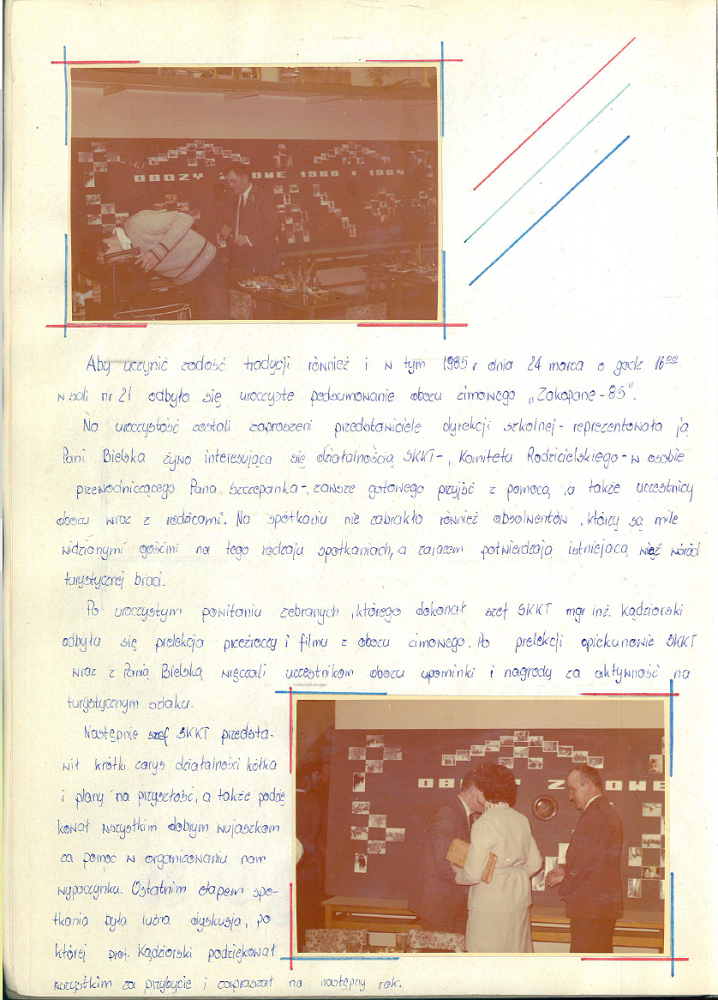 OBOZY ZIMOWE 1966 I 1984
Aby uczynić zadość tradycji również i w tym 1985 r dnia 24 marca o godz 16⁰⁰
w sali nr 21 odbyło się uroczyste podsumowanie obozu zimowego „Zakopane - 85".
Na uroczystość zostali zaproszeni przedstawiciele dyrekcji szkolnej - reprezentowała ją
Pani Bielska żywo interesująca się działalnością SKKT -, Komitetu Rodzicielskiego - w osobie
przewodniczącego Pana Szczepanka -, zawsze gotowego przyjść z pomocą, a także uczestnicy
obozu wraz z rodzicami. Na spotkaniu nie zabrakło również absolwentów, którzy są mile
widzianymi gośćmi na tego rodzaju spotkaniach, a zarazem potwierdzają istniejącą więź wśród
turystycznej braci.
Po uroczystym powitaniu zebranych, którego dokonał szef SKKT mgr inż. Kądziorski
odbyła się prelekcja przeźroczy i filmu z obozu zimowego. Po prelekcji opiekunowie SKKT
wraz z Panią Bielską wręczali uczestnikom obozu upominki i nagrody za aktywność na
turystycznym szlaku.
Następnie szef SKKT przedsta-
wił krótki zarys działalności kółka
i plany na przyszłość, a także podzię
kował wszystkim dobrym wujaszkom
za pomoc w organizowaniu nam
wypoczynku. Ostatnim etapem spo-
tkania była luźna dyskusja, po
której prof. Kądziorski podziękował
wszystkim za przybycie i zapraszał na następny rok.
OBOZY ZIMOWE